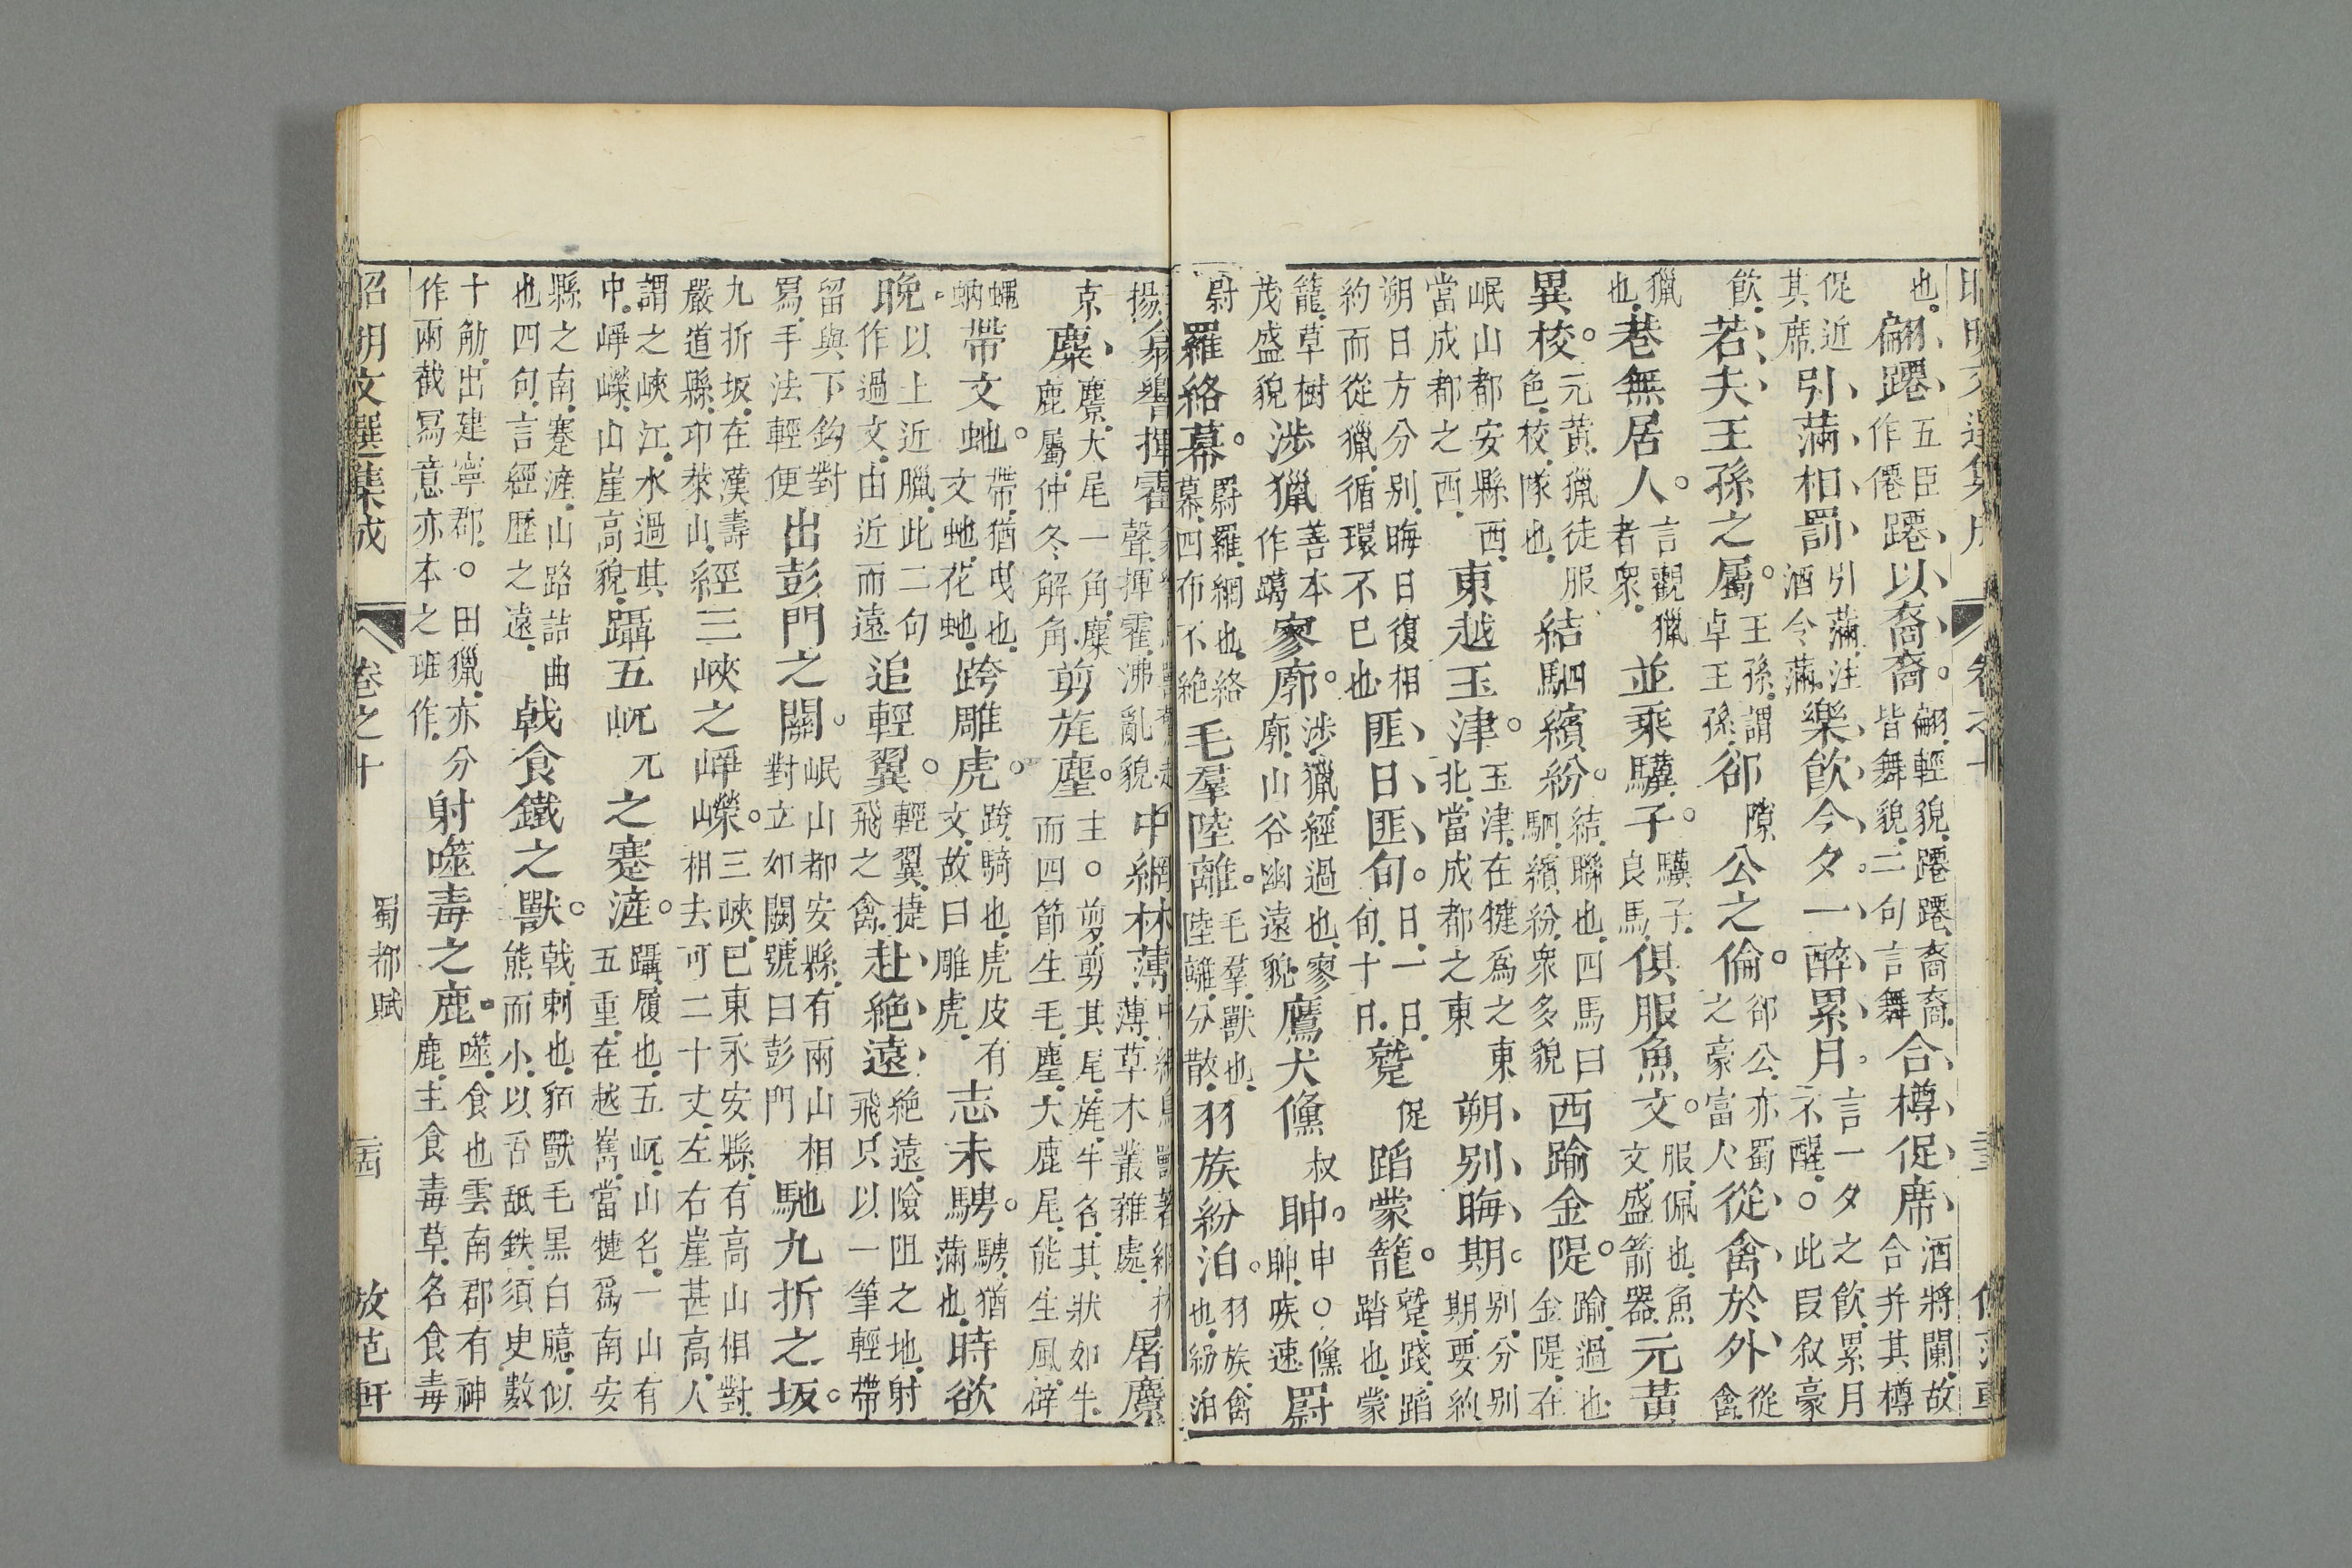 也。翩躚五臣作僊躚以裔裔。翩輕貌躚躚裔裔皆舞貌二句言舞合樽促席酒將闌故合并其樽
促近其席引滿相罰引滿注酒令滿樂飲今夕。一醉累月。言一夕之飲累月不醒○此段叙豪
飲若夫王孫之屬。王孫謂卓王孫郤隙公之倫。郤公亦蜀之豪富人從禽於外從禽
獵也巷無居人。言觀獵者衆並乘驥子。驥子良馬俱服魚文。服佩也魚文盛箭器元黃
異校。元黃獵徒服色校隊也結駟繽紛。結聯也四馬曰駟繽紛衆多貌西踰金隄。踰過也金隄在
岷山都安縣西當成都之西東越玉津。玉津在犍爲之東北當成都之東朔別晦期。別分別期要約
朔日方分別晦日復相約而從獵循環不已也匪日匪旬。日一日旬十日蹵促蹈蒙籠。蹵踐蹈踏也蒙
籠草樹茂盛貌涉獵善本作躐寥廓。涉獵經過也寥廓山谷幽遠貌鷹犬儵叔眒。申○儵眒疾速罻
尉羅絡幕。罻羅網也絡幕四布不絶毛羣陸離。毛羣獸也陸離分散羽族紛泊。羽族禽也紛泊
揚翕響揮霍聲揮霍沸亂貌中網林薄薄草木叢雜處屠麖
京麋麖大尾一角麋鹿屬仲冬解角剪旄麈。主○剪剪其尾旄牛名其狀如牛而四節生毛麈大鹿尾能生風辟
蠅蚋帶文虵。帶猶曳也文虵花虵跨雕虎。跨騎也虎皮有文故曰雕虎志未騁。騁猶滿也時欲
晚。以上近臘此二句作過文由近而遠追輕翼。輕翼捷飛之禽赴絶遠絶遠險阻之地射飛只以一筆輕帶
留與下鈎對寫手法輕便出彭門之闕。岷山都安縣有兩山相對立如闕號曰彭門馳九折之坂。
九折坂在漢壽嚴道縣卭萊山經三峽之崢嶸。三峽巴東永安縣有高山相對相去可二十丈左右崖甚高人
謂之峽江水過其中。崢嶸山崖高貌躡五屼兀之蹇滻。躡履也五屼山名一山有五重在越嶲當犍爲南安
縣之南蹇滻山路詰曲也四句言經歷之遠戟食鐵之獸。戟刺也貊獸毛黒白臆似熊而小以舌舐鉄須史數
十觔出建寧郡。○田獵亦分作兩截寫意亦本之班作射噬毒之鹿。噬食也雲南郡有神鹿主食毒草名食毒
昭明文選集成 卷之十 蜀都賦 倣范軒